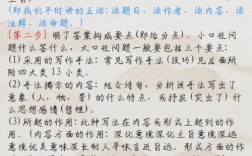 (即我们平时讲的五读:读题目、读作者、读内容、读注释、读命题。)
[第二步] 明了答案构成要点(即给分点)。小口径问题什么答什么,大口径问题一般要包括三个要点:
(1)采用的写作手法:常见写作手法(技巧)见后面所附四大类13小类。
(2)手法揭示的内容:结合诗句,分析该手法写出了意象(人、物、景)的什么特点,或抒发(突出)了什么思想感情(哲理)。
(3)所起的作用:此种写法在内容或形式上起到的作用。内容方面的作用:深化意境深化主旨意境深远意境优美意味深长耐人寻味言近旨远。形式方面的